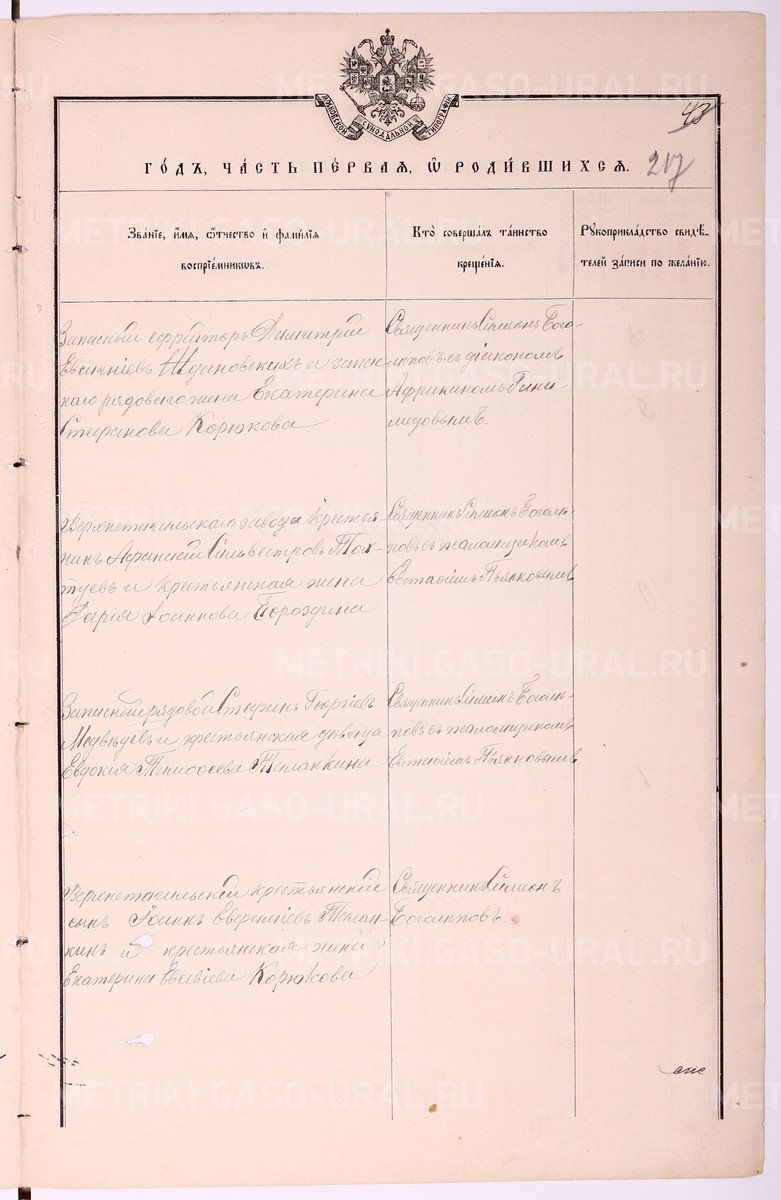 МОСКОВСКОЙ СѴНОДАЛЬНОЙ ТИПОГРАФІИ
43
217
ГОДЪ, ЧАСТЬ ПЕРВАЯ, Ѡ РОДИВШИХСЯ.
Званїе, имя, ѻтчество и фамилїя
воспрїемниковъ.
Кто совершалъ таинство
крещенїя.
Рукоприкладство свидѣ-
телей записи по желанїю.
Запасный ефрейторъ Димитрій
Ждановскихъ и запас-
наго рядового жена Екатерина
Стефанова Корюкова.
Священникъ Симеонъ Бого-
лѣповъ съ діакономъ
Африканомъ
Верхнетагильскаго завода крестья-
нинъ Афанасій Сильвестровъ Тох-
туевъ и крестьянская жена
Дарія Іоаннова Бороздина
Священникъ Симеонъ Боголѣ-
повъ съ псаломщикомъ
Евстафіемъ Пьянковымъ
Запасный рядовой Стефанъ Георгіевъ
Медвѣдевъ и крестьянская дѣвица
Евдокія Тимофеева Таланкина
Священникъ Симеонъ Боголѣ-
повъ съ псаломщикомъ
Евстафіемъ Пьянковымъ
Верхнетагильскій крестьянскій
сынъ Іоаннъ
кинъ и крестьянская жена
Екатерина Корюкова
Священникъ Симеонъ
Боголѣповъ.
METRIKI.GASO-URAL.RU